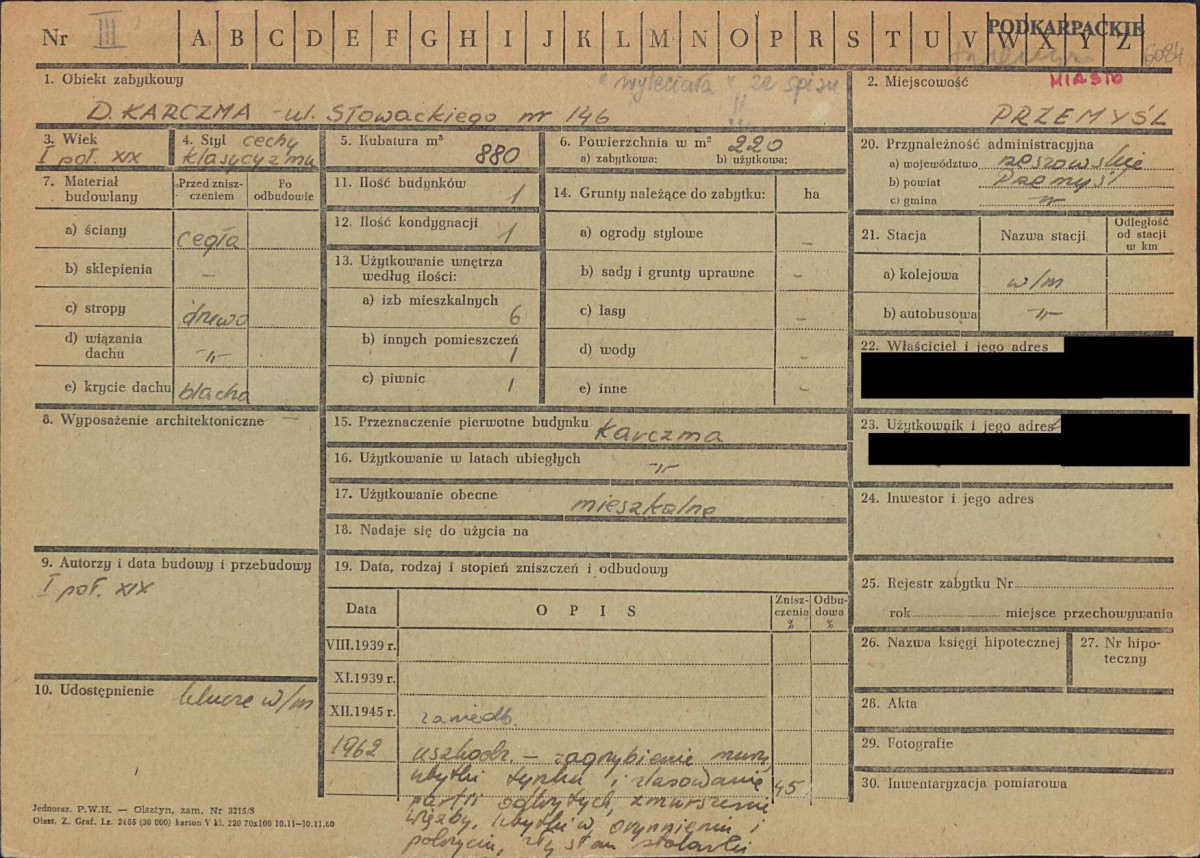 PODKARPACKIE
Nr III A B C D E F G H I J K L M N O P R S T U V W X Y Z
6084
"wyleciała" ze spisu !!
MIASTO
1. Obiekt zabytkowy
D. KARCZMA - ul. Słowackiego nr 146
2. Miejscowość
PRZEMYŚL
3. Wiek
I poł. XIX
4. Styl cechy
klasycyzmu
5. Kubatura m³
880
6. Powierzchnia w m² 220
a) zabytkowa: b) użytkowa:
7. Materiał budowlany
Przed zniszczeniem
Po odbudowie
a) ściany cegła
b) sklepienia –
c) stropy drewo
d) wiązania dachu -"-
e) krycie dachu blacha
8. Wyposażenie architektoniczne –
9. Autorzy i data budowy i przebudowy
I poł. XIX
10. Udostępnienie klucze w/m
11. Ilość budynków 1
12. Ilość kondygnacji 1
13. Użytkowanie wnętrza
według ilości:
a) izb mieszkalnych 6
b) innych pomieszczeń 1
c) piwnic 1
14. Grunty należące do zabytku: ha
a) ogrody stylowe –
b) sady i grunty uprawne –
c) lasy –
d) wody –
e) inne –
15. Przeznaczenie pierwotne budynku karczma
16. Użytkowanie w latach ubiegłych -"-
17. Użytkowanie obecne mieszkalne
18. Nadaje się do użycia na
19. Data, rodzaj i stopień zniszczeń i odbudowy
Data OPIS Zniszczenia % Odbudowa %
VIII.1939 r.
XI.1939 r.
XII.1945 r. zaniedb.
1962 uszkodz. – zagrzybienie mury,
ubytki tynku i zlasowanie 45
partii odkrytych, zmurszenie
więźby, ubytki w orynnieniu i
pokryciu, zły stan stolarki
20. Przynależność administracyjna
a) województwo rzeszowskie
b) powiat Przemyśl
c) gmina -"-
21. Stacja Nazwa stacji Odległość od stacji w km
a) kolejowa w/m
b) autobusowa -"-
22. Właściciel i jego adres
23. Użytkownik i jego adres
24. Inwestor i jego adres
25. Rejestr zabytku Nr
rok miejsce przechowywania
26. Nazwa księgi hipotecznej
27. Nr hipoteczny
28. Akta
29. Fotografie
30. Inwentaryzacja pomiarowa
Jednoraz. P.W.H. — Olsztyn, zam. Nr 3215/5
Olszt. Z. Graf. Lz. 2485 (30 000) karton V kl. 220 70x100 10.11—30.11.60